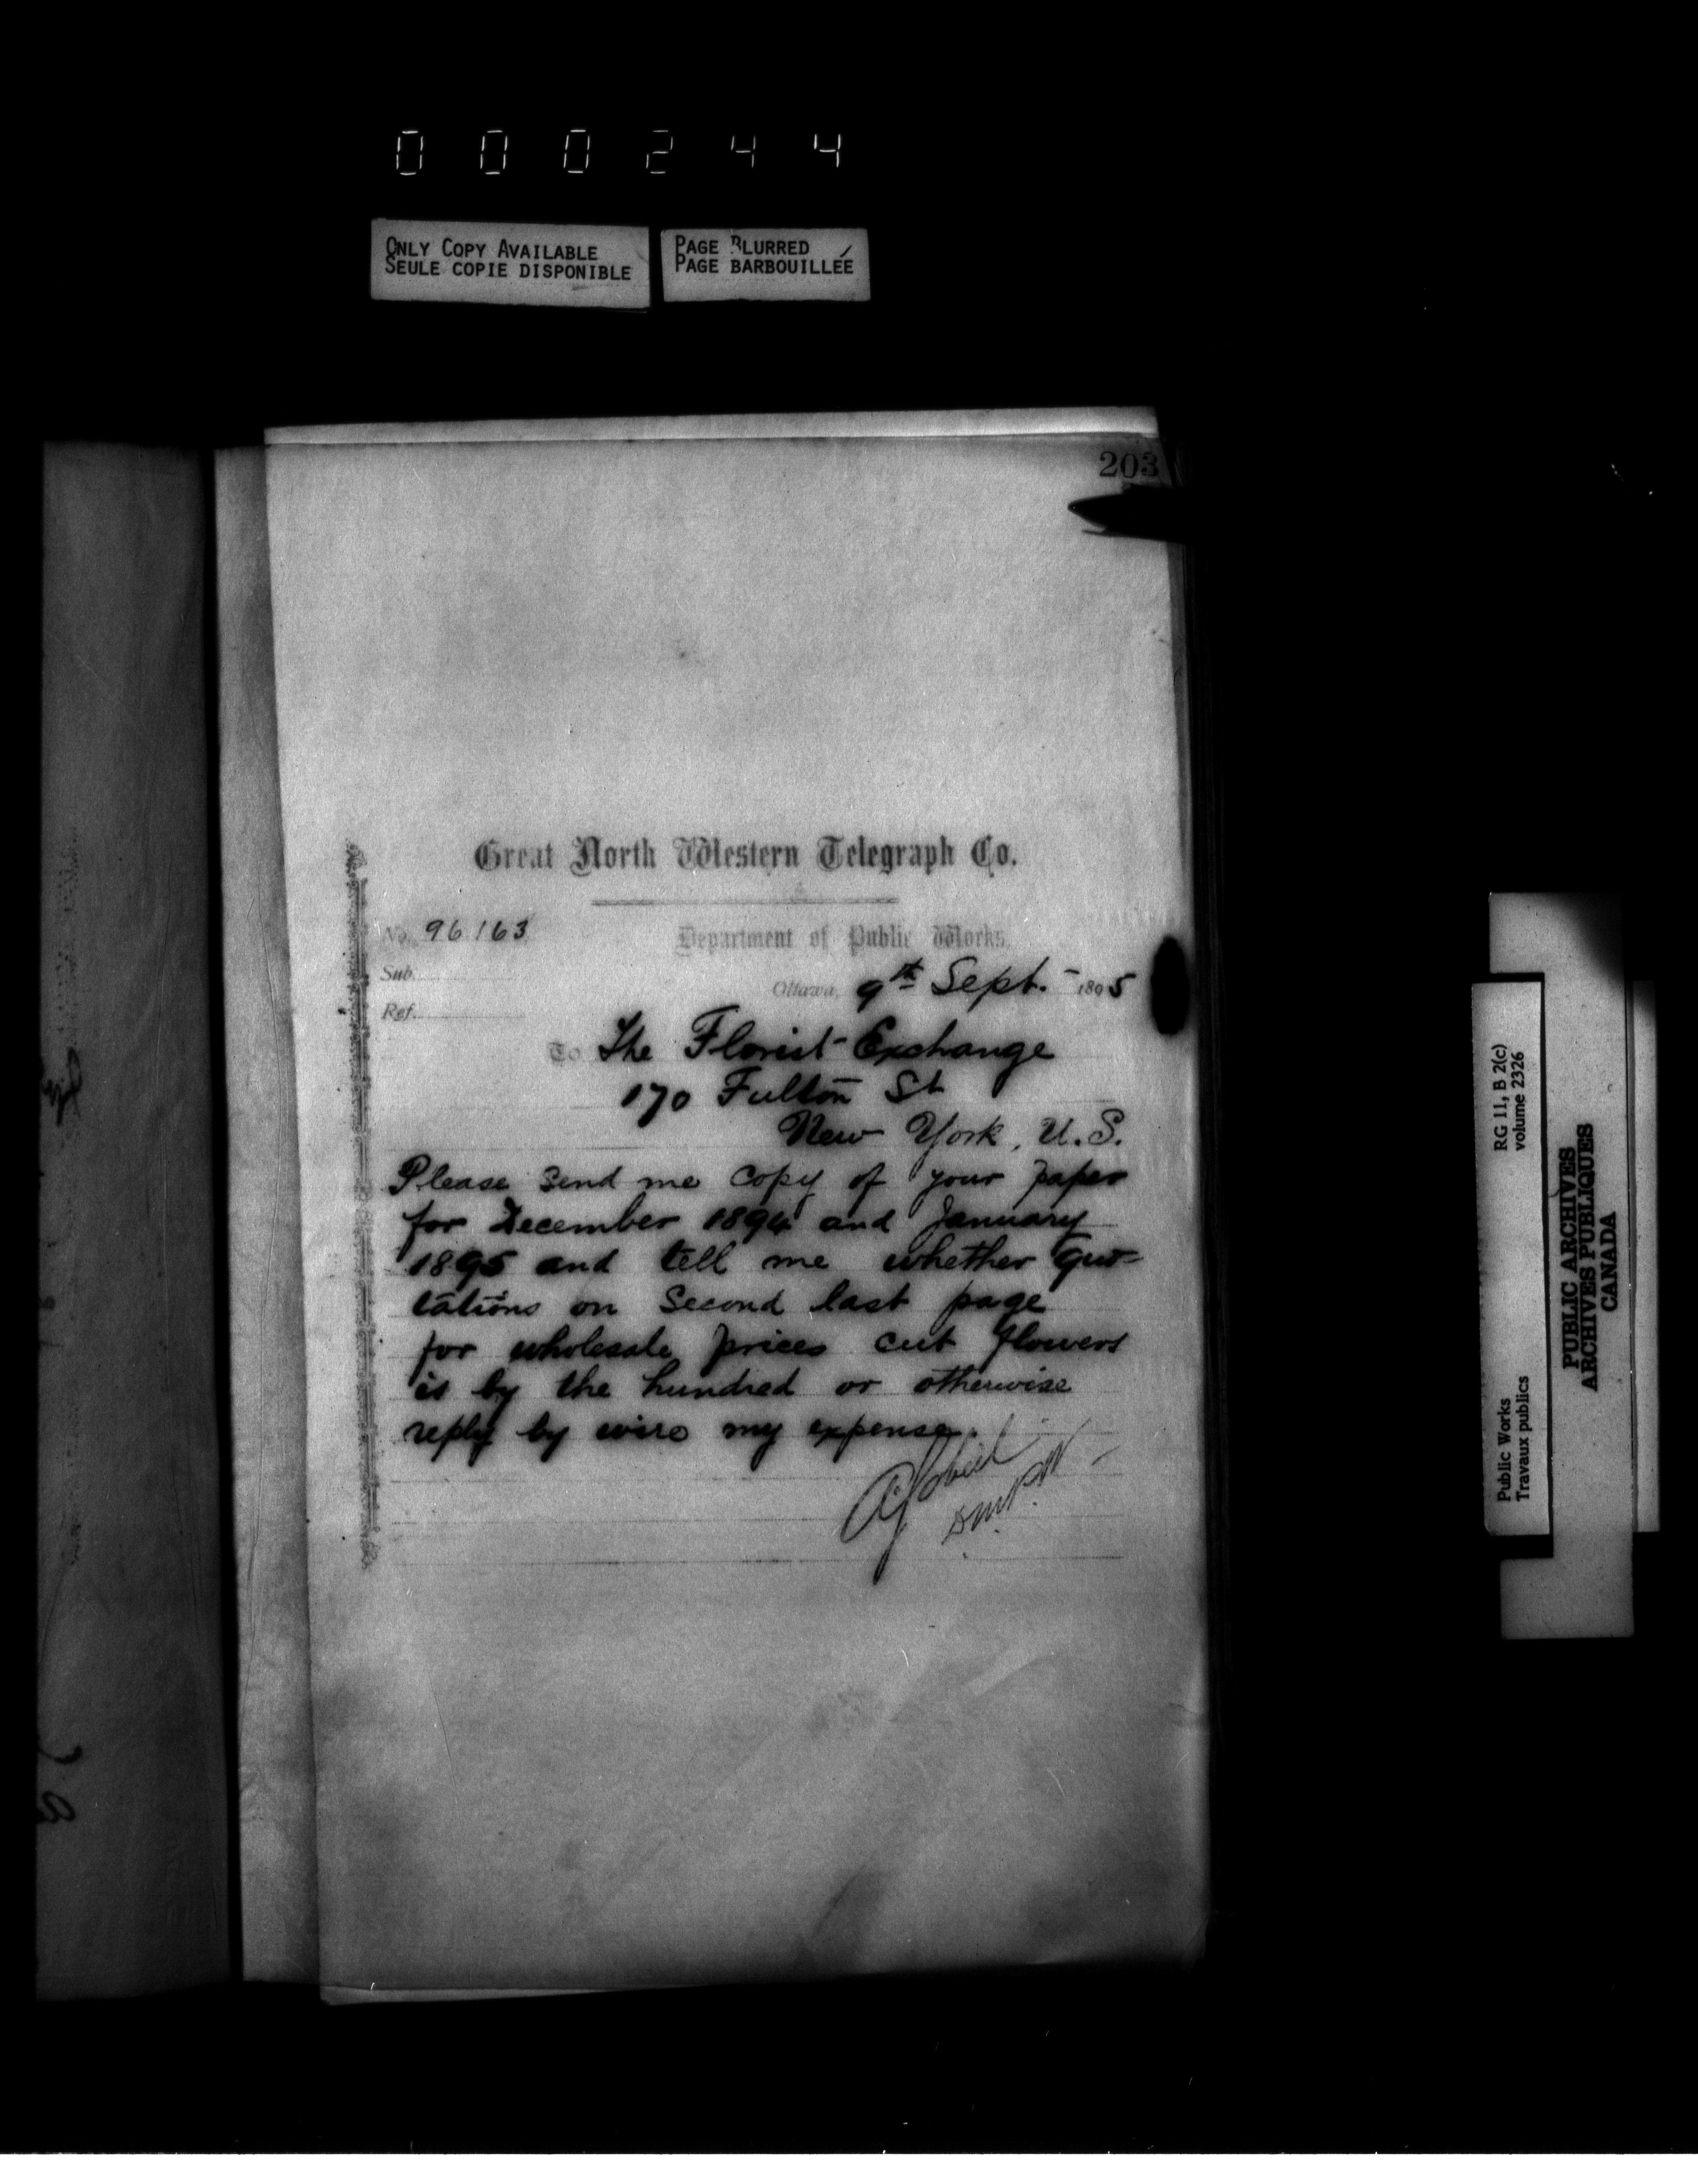 000244
ONLY COPY AVAILABLE
SEULE COPIE DISPONIBLE
PAGE BLURRED
PAGE BARBOUILLÉE
203
Great North Western Telegraph Co.
No. 96163
Department of Public Works.
Sub.
Ottawa, 9th Sept. - 1895
Ref.
To The Florist Exchange
170 Fulton St
New York, U.S.
Please send me copy of your paper
for December 1894 and January
1895 and tell me whether quo-
tations on second last page
for wholesale prices cut flowers
is by the hundred or otherwise
reply by wire my expense.
D.M.P.W.
Public Works
Travaux publics
RG 11, B 2(c)
volume 2326
PUBLIC ARCHIVES
ARCHIVES PUBLIQUES
CANADA